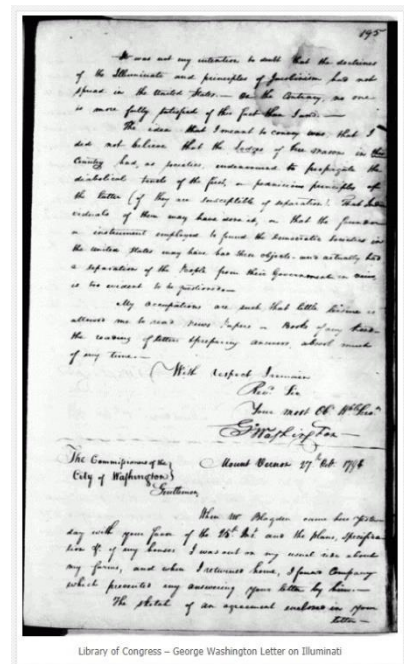 195
It was not my intention to doubt that the doctrines
of the Illuminati and principles of Jacobinism had not
spread in the United States. — On the contrary, no one
is more fully satisfied of this fact than I am. —
The idea that I meant to convey was, that I
did not believe that the Lodges of free masons in this
Country had, as Societies, endeavoured to propagate the
diabolical tenets of the first, or pernicious principles of
the latter (if they are susceptible of separation). That Indi
viduals of them may have done it, or that the founder
or instrument employed to found the democratic Societies in
the United States may have had these objects — and actually had
a separation of the People from their Government in view,
is too evident to be questioned. —
My occupations are such that little leisure is
allowed me to read News Papers or Books of any kind
the reading of letters & preparing answers, absorb much
of my time. —
With respect I remain
Revd. Sir
Your most Ob Hble
Go Washington
The Commissioners of the
City of Washington
Mount Vernon 27th Oct
Gentlemen,
When Mr Blagden came here yester
day with your favor of the 25th Inst and the plans, Specifica
tion & of my houses I was out on my usual ride about
my farms, and when I returned home, I found Company
which prevented my answering your letter by him. —
The sketch of an agreement enclosed in your
letter —
Library of Congress – George Washington Letter on Illuminati